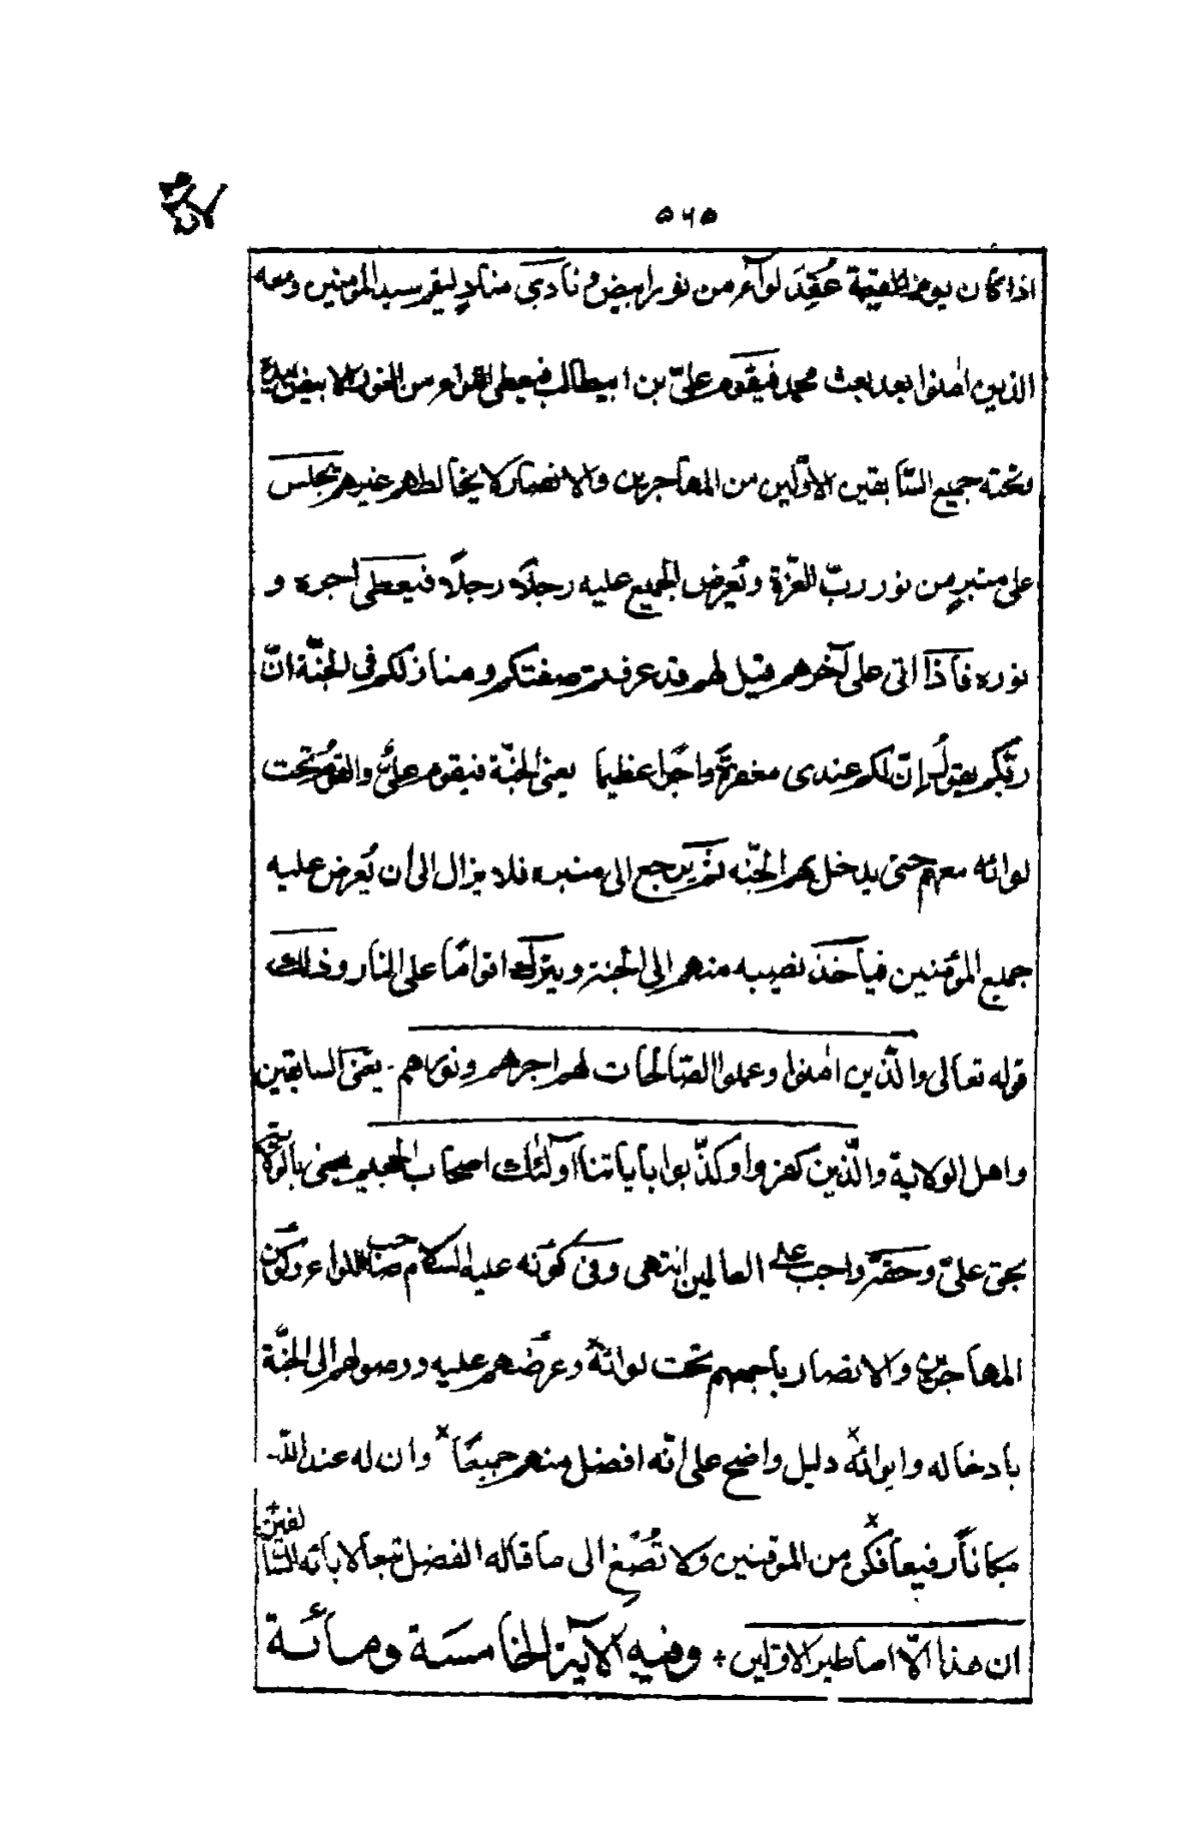 ٥٦٥
اذا كان يوم القيمة عُقِدَ لوآء من نور ابيض و نادى منادٍ ليقم سيد المؤمنين ومعه
الذين امنوا بعد بعث محمد فيقوم علىّ بن ابيطالب فيعطى اللواء من النور الابيض بيده
وتحته جميع السّابقين الاوّلين من المهاجرين والانصار لا يخالطهم غيرهم يجلس
على منبرٍ من نور ربّ العزّة ويُعرض الجميع عليه رجلًا رجلًا فيعطى اجره و
نوره فاذا اتى على آخرهم قيل لهم قد عرفتم صفتكم ومنازلكم فى الجنّة انّ
ربّكم يقول إنّ لكم عندى مغفرةً واجرًا عظيما يعنى الجنّة فيقوم علىٌّ والقوم تحت
لوائه معهم حتى يدخل بهم الجنّه ثم يرجع الى منبره فلا يزال الى أن يُعرض عليه
جميع المؤمنين فياخذ نصيبه منهم الى الجنة ويترك اقوامًا على النار وذلك
قوله تعالى والّذين امنوا وعملوا الصّالحات لهم اجرهم ونورهم يعنى السابقين
واهل الولاية والّذين كفروا وكذّبوا باياتنا اولئك اصحاب الجحيم يعنى بالولاية
بحق علىّ وحقه واجب على العالمين انتهى وفى كونه عليه السلام صاحب اللواء وكون
المهاجرين والانصار باجمعهم تحت لوائه وعرضهم عليه ووصولهم الى الجنّة
بادخاله وايوائه دليل واضح على انّه افضل منهم جميعًا وان له عند اللّه
مكاناً رفيعاً فكن من الموقنين ولا تُصْغِ الى ما قاله الفضل تبعا لابائه السّالفين
ان هذا الّا اساطير الاوّلين + وفيه الآية الخامسة ومأئة